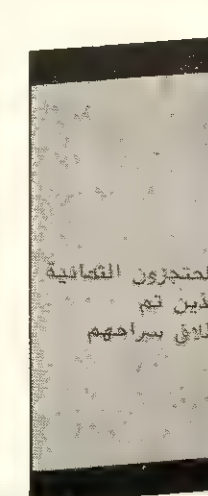 لمحتجزون الثمانية
لذين تم
طلاق سراحهم